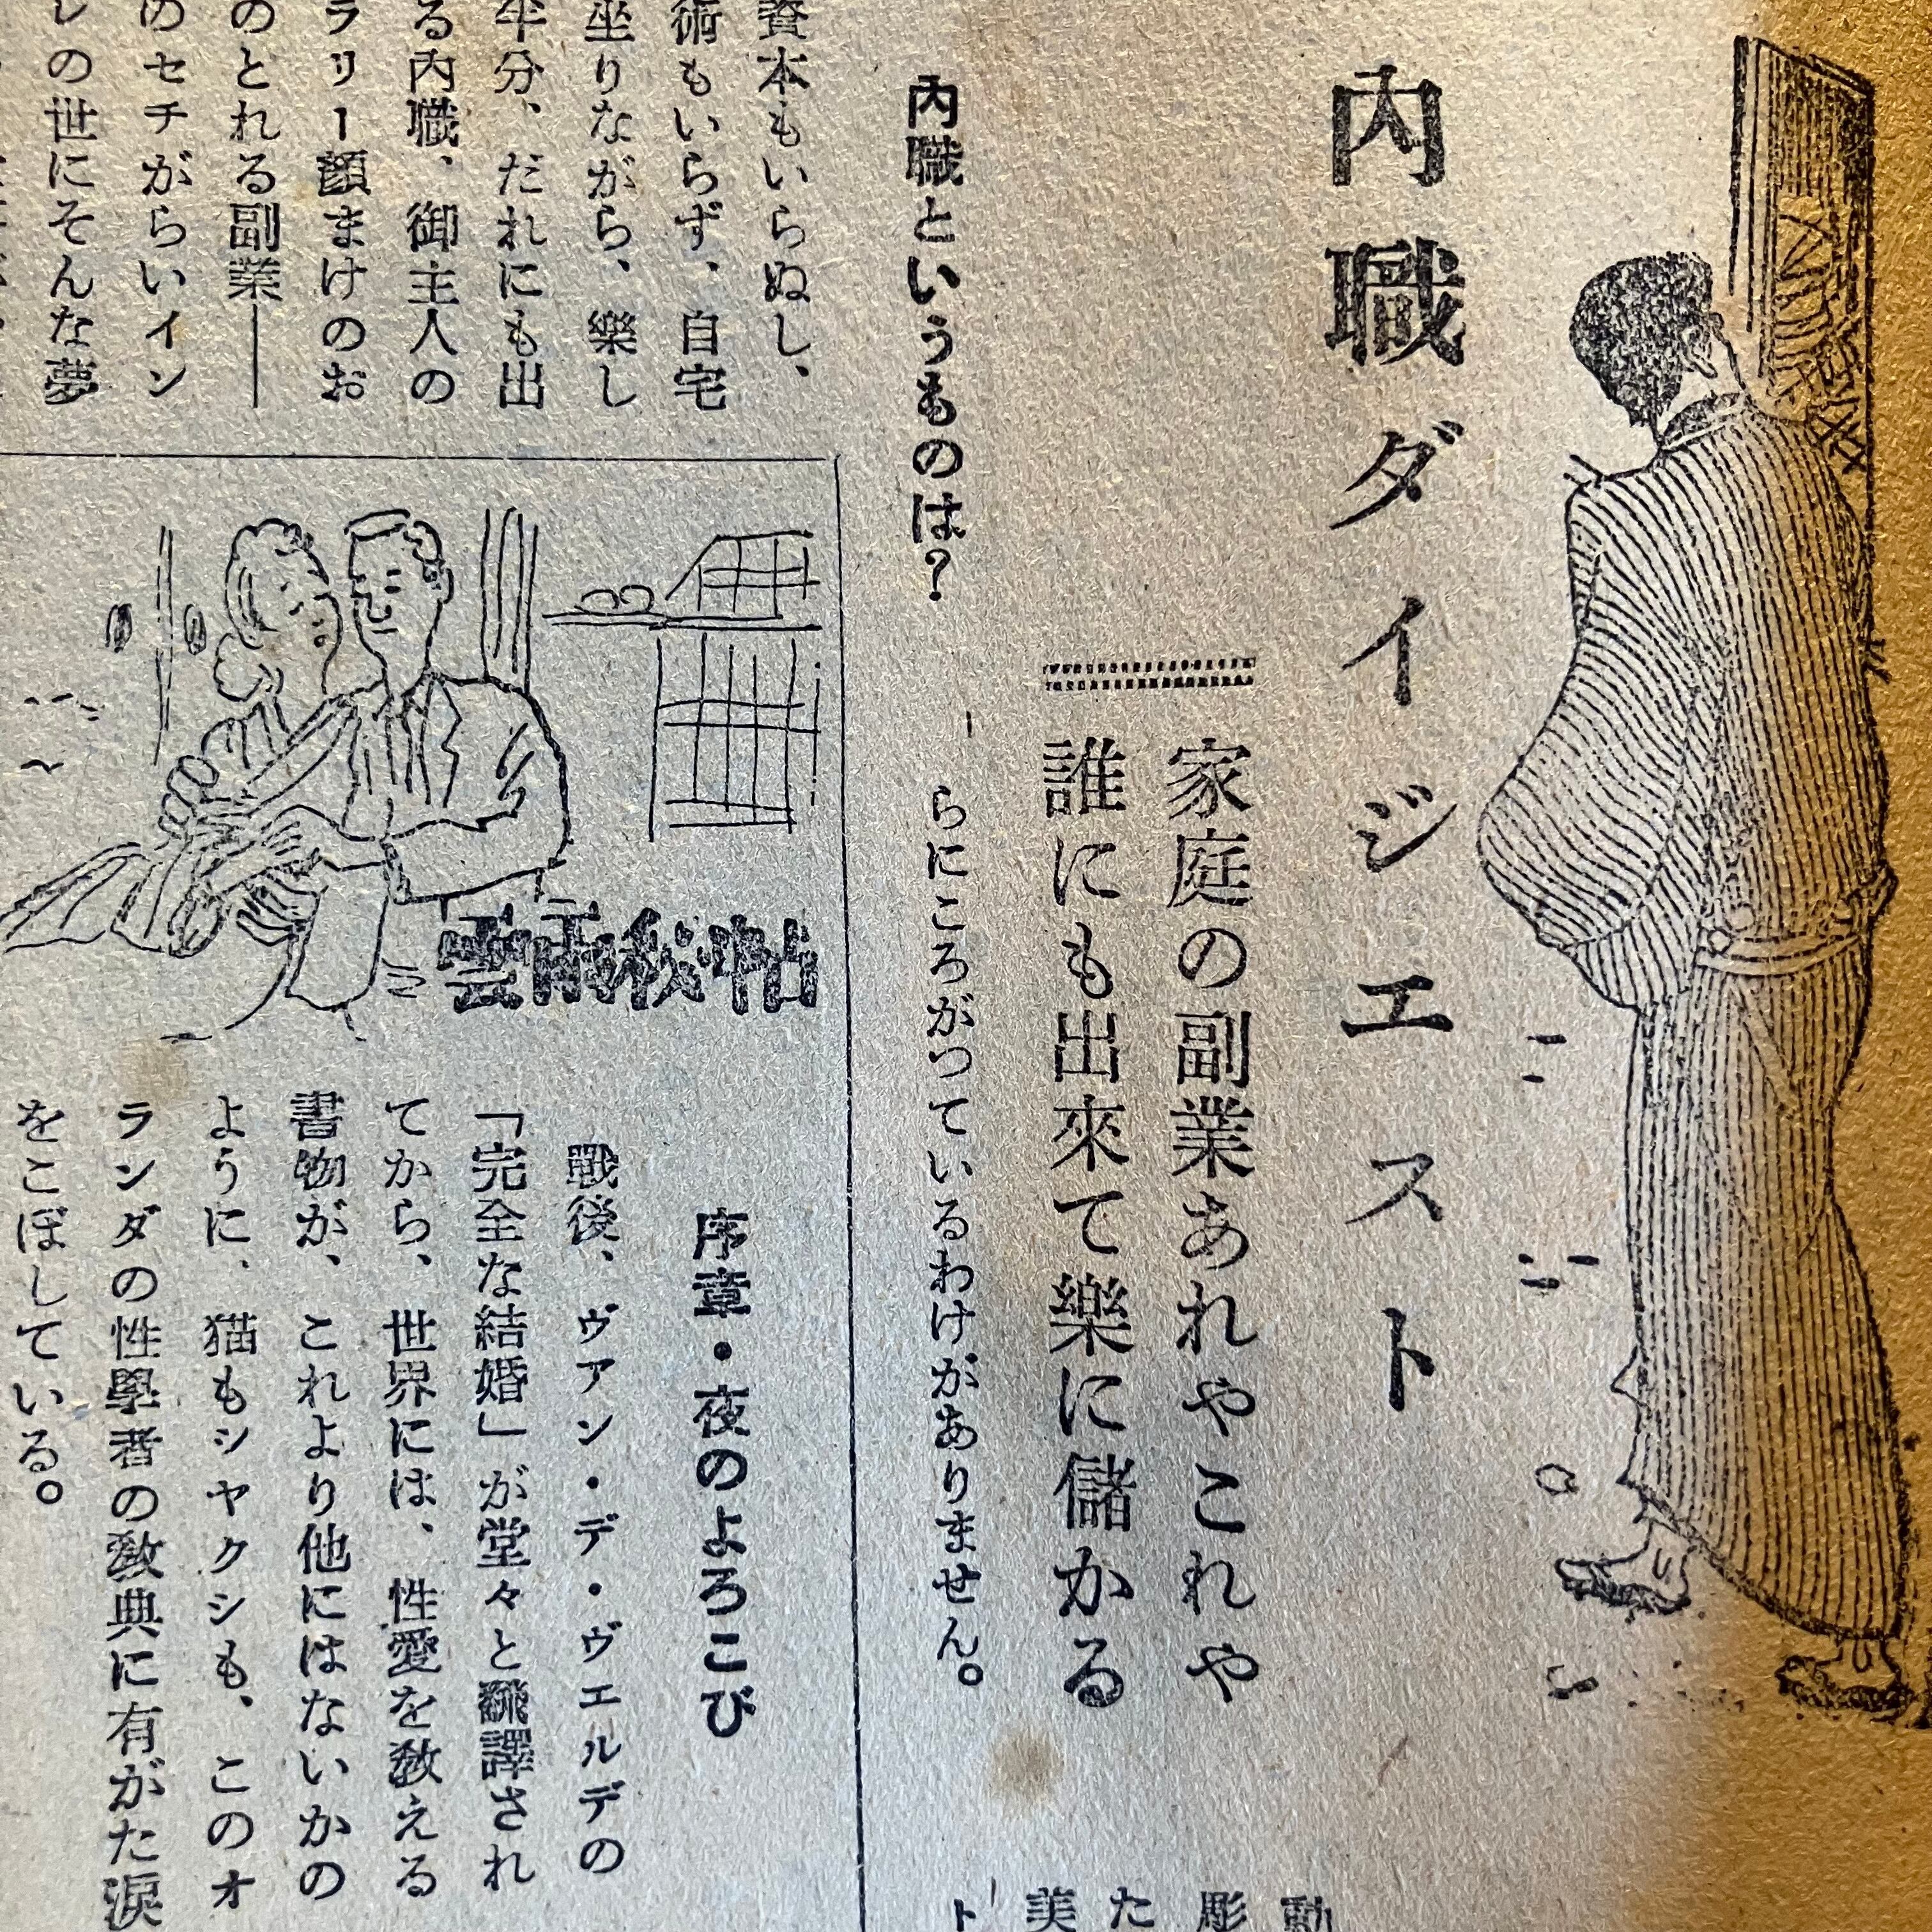 內職ダイジエスト
家庭の副業あれやこれや
誰にも出來て樂に儲かる
內職というものは？
資本もいらぬし、
術もいらず、自宅
坐りながら、樂し
半分、だれにも出
る內職、御主人の
ラリー顔まけのお
のとれる副業――
のセチがらいイン
レの世にそんな夢
らにころがつているわけがありません。
雲雨秘帖
序章・夜のよろこび
戰後、ヴアン・デ・ヴエルデの
「完全な結婚」が堂々と飜譯され
てから、世界には、性愛を敎える
書物が、これより他にはないかの
ように、猫もシヤクシも、このオ
ランダの性學者の敎典に有がた淚
をこぼしている。
動
彫
た
美
ト